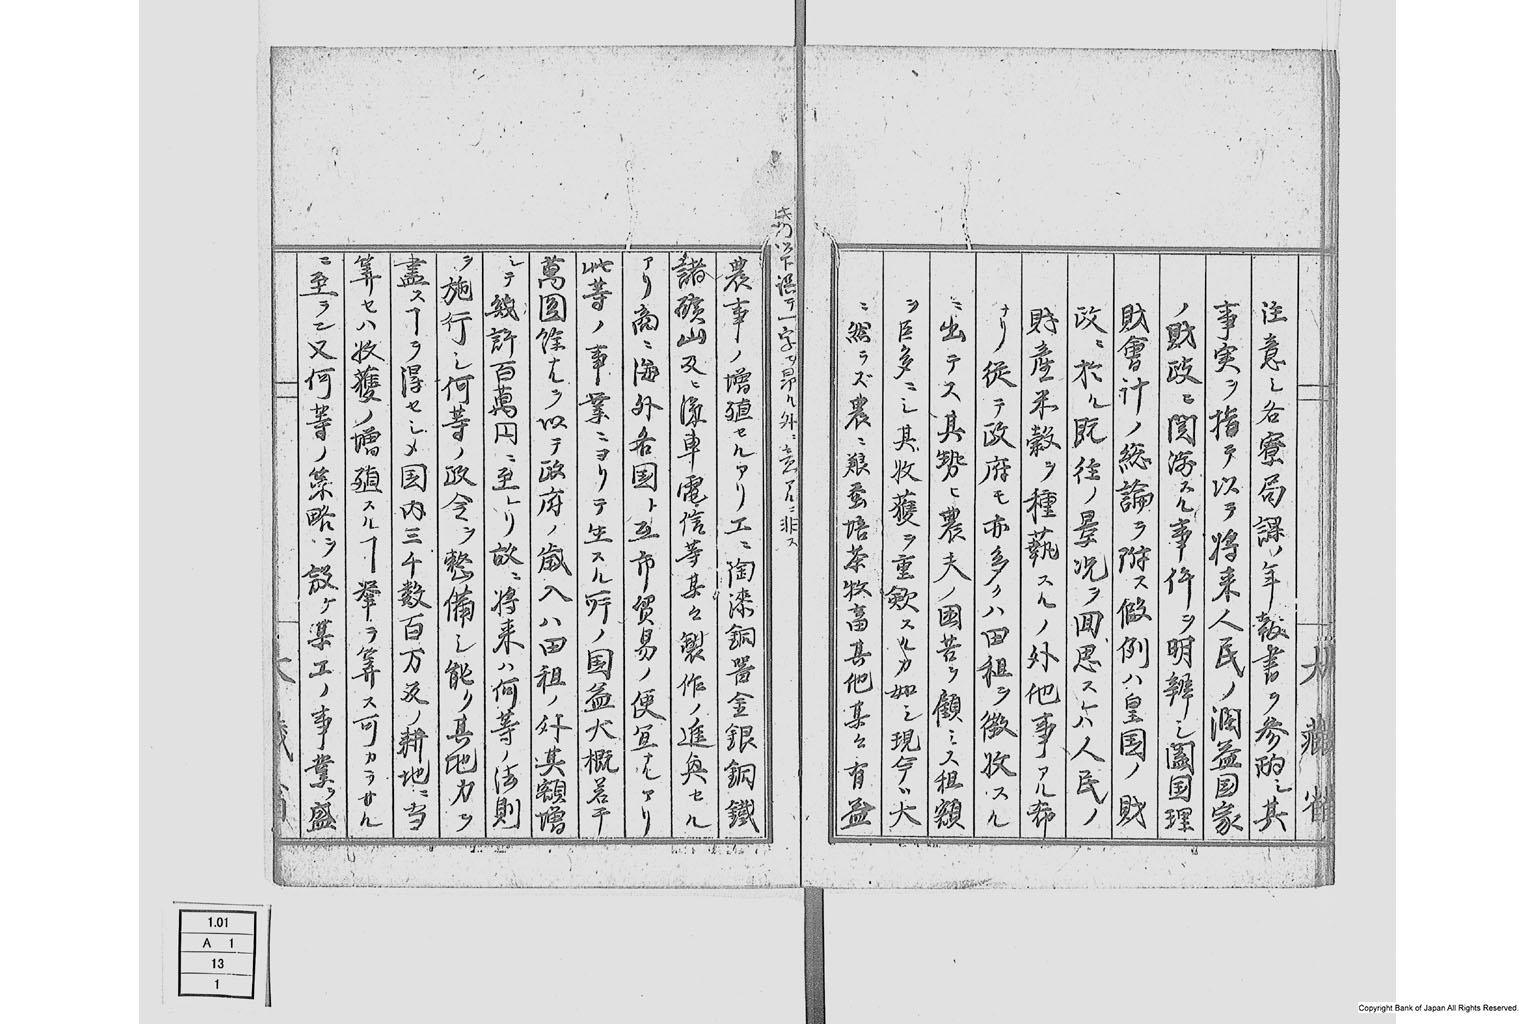 注意シ各寮局課ノ年報書ヲ参酌シ其
事実ヲ指テ以ラ将来人民ノ潤益国家
ノ財政ニ関渉スル事件ヲ明辨シ闔国理
財會計ノ総論ヲ附ス假例ハ皇国ノ財
政ニ於ル既往ノ景况ヲ回思スレハ人民ノ
財産米穀ヲ種執スルノ外他事アル希
ナリ従テ政府モ亦多クハ田租ヲ徴收スル
ニ出テス其勢ヒ農夫ノ困苦ヲ顧ミス租額
ヲ巨多ニシ其收獲ヲ重歛スルカ如シ現今ハ大
ニ然ラズ農ニ養蚕培茶牧畜其他某々有益
此行以下混テ一字ヲ昂ル外ニ意アルニ非ス
農事ノ増殖セルアリ工ニ陶漆銅器金銀銅鐵
諸礦山及ヒ滊車電信等某々製作ノ進奥セル
アリ商ニ海外各国ト互市貿易ノ便宜ナルアリ
此等ノ事業ニヨリテ生スル所ノ国益大概若干
萬圓餘ナルヲ以テ政府ノ歳入ハ田租ノ外其額増
シテ幾許百萬円ニ至レリ故ニ将来ハ何等ノ法則
ヲ施行シ何等ノ政令ヲ整備シ能ク其地力ヲ
盡スヿヲ得セシメ国内三千数百万反ノ耕地ニ当
算セハ收獲ノ増殖スルヿ挙ラ算ス可カラサル
ニ至ラン又何等ノ策略ヲ設ケ某工ノ事業ヲ盛
大藏省
1.01
A 1
13
1
Copyright Bank of Japan All Rights Reserved.